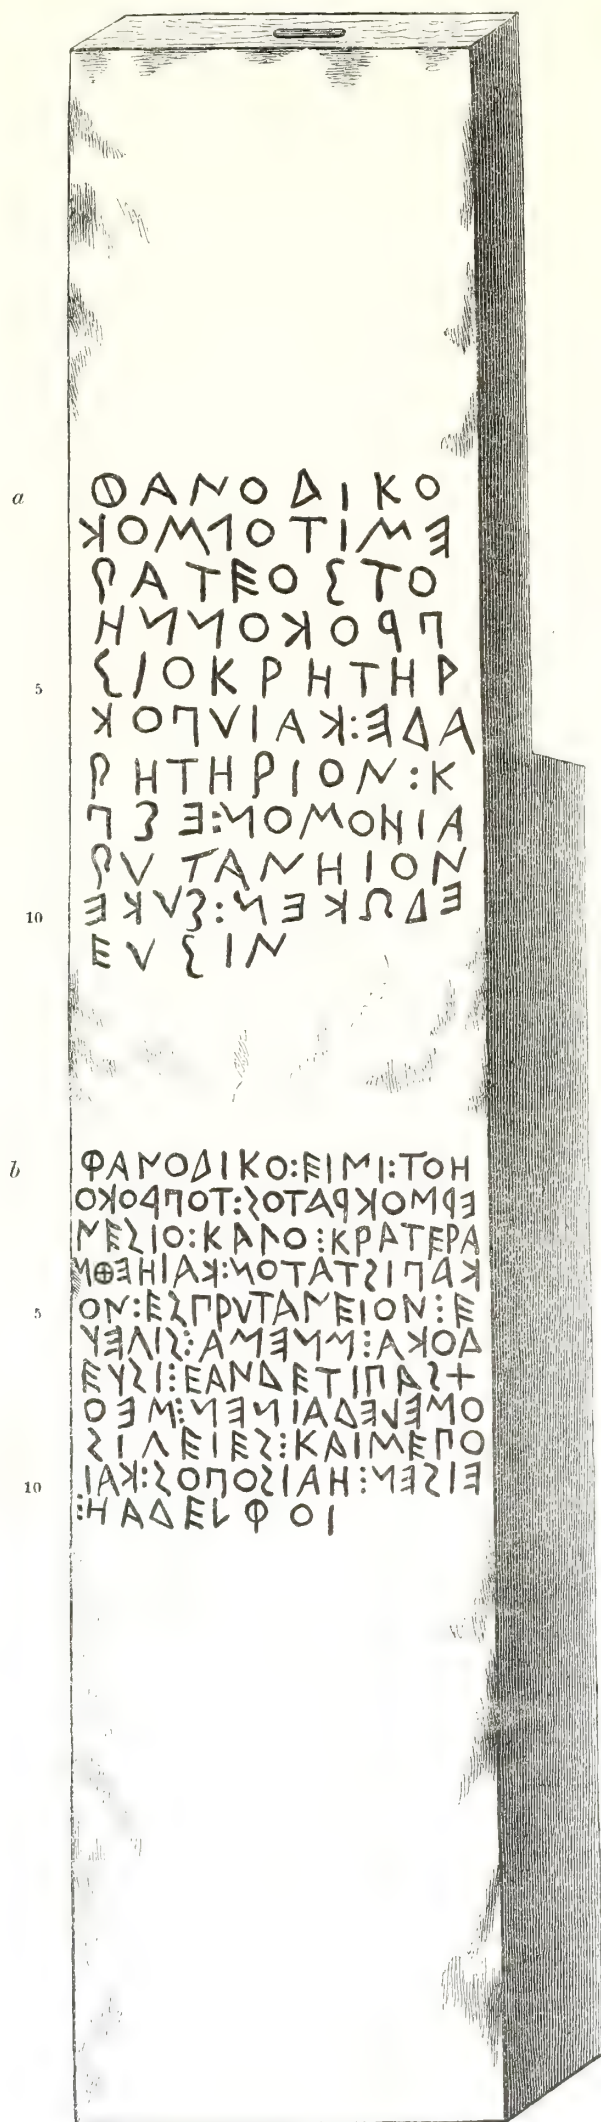 a
ΦΑΝΟΔΙΚΟ
ΕΜΙΤΟΡΜΟΚ
ΡΑΤΕΟΣΤΟ
ΠΡΟΚΟΝΝΗ
5 ΣΙΟΚΡΗΤΗΡ
ΑΔΕ:ΚΑΙΥΠΟΚ
ΡΗΤΗΡΙΟΝ:Κ
ΑΙΗΘΜΟΝ:ΕΣΠ
ΡΥΤΑΝΗΙΟΝ
10 ΕΔΩΚΕΝ:ΣΥΚΕ
ΕΥΣΙΝ
b
ΦΑΝΟΔΙΚΟ:ΕΙΜΙ:ΤΟΗ
ΕΡΜΟΚΡΑΤΟΣ:ΤΟΠΡΟΚΟ
ΝΕΣΙΟ:ΚΑΓΟ:ΚΡΑΤΕΡΑ
ΚΑΠΙΣΤΑΤΟΝ:ΚΑΙΗΕΘΜ
5 ΟΝ:ΕΣΠΡΥΤΑΝΕΙΟΝ:Ε
ΔΟΚΑ:ΜΝΕΜΑ:ΣΙΓΕΥ
ΕΥΣΙ:ΕΑΝΔΕΤΙΠΑΣΧ
ΟΜΕΛΕΔΑΙΝΕΝ:ΜΕΟ
ΣΙΓΕΙΕΣ:ΚΑΙΜΕΠΟ
10 ΕΙΣΕΝ:ΗΑΙΣΟΠΟΣ:ΚΑΙ
:ΗΑΔΕΛΦΟΙ